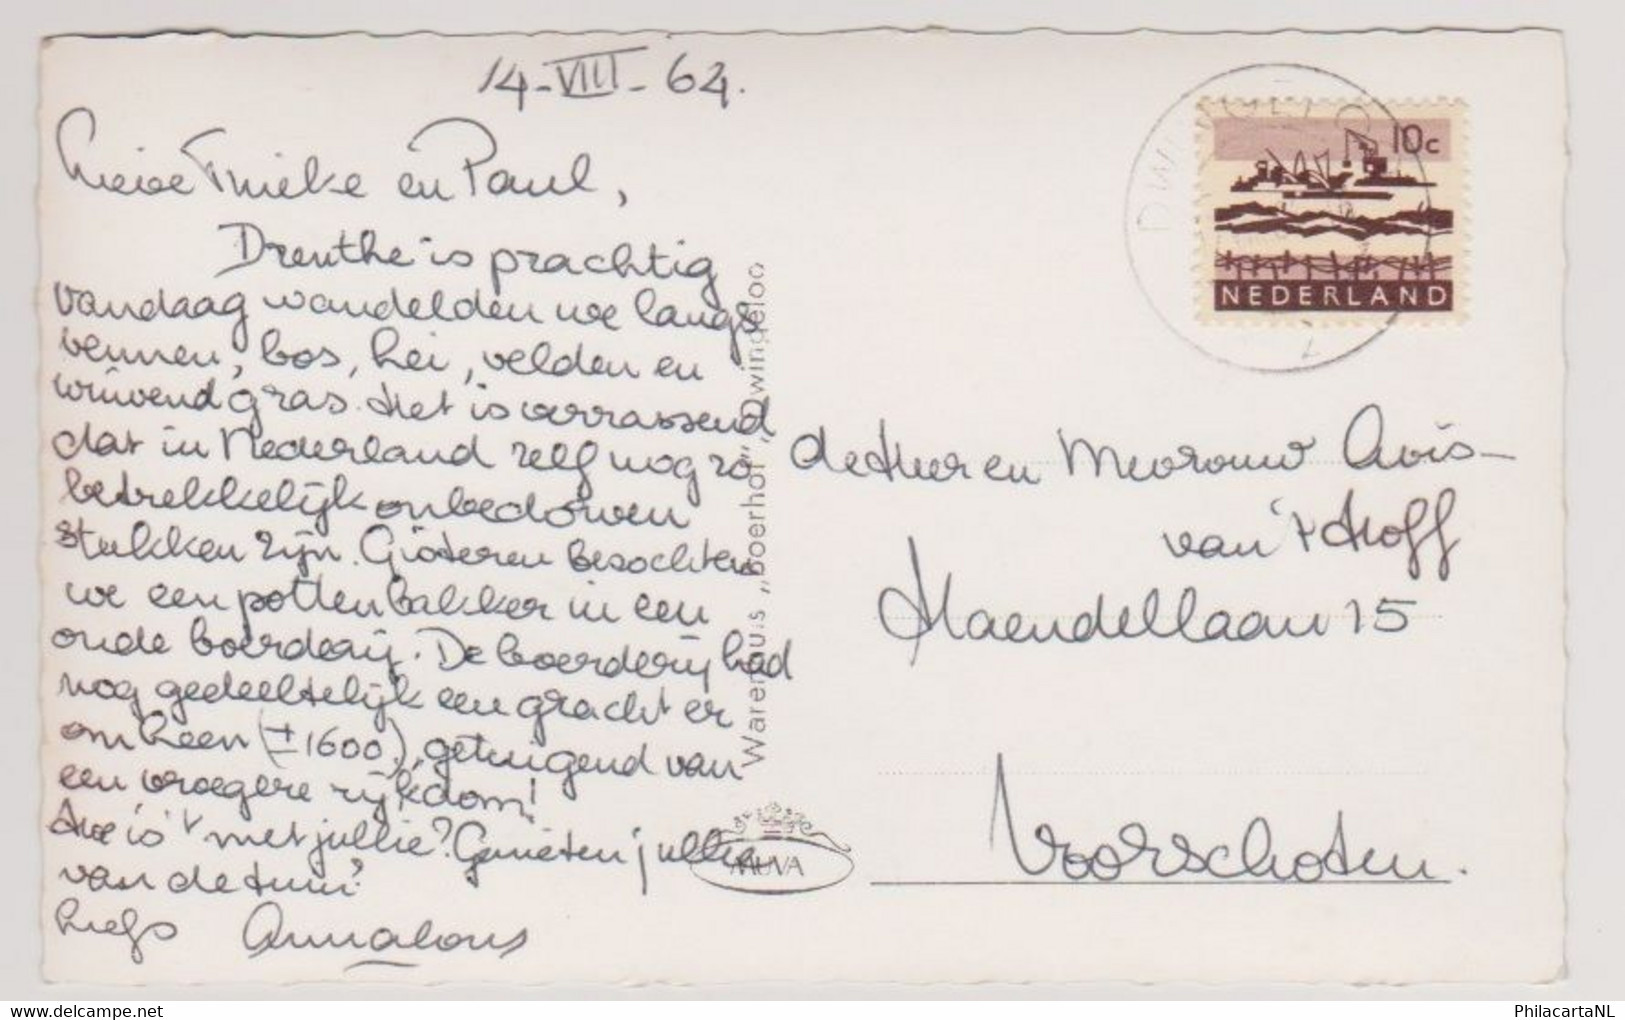 14-VIII-64.
Lieve Fineke en Paul,
Drenthe is prachtig
vandaag wandelden we langs
vennen, bos, hei, velden en
wuivend gras. Het is verrassend
dat in Nederland zelf nog zo
betrekkelijk onbedorven
stukken zijn. Gisteren bezochten
we een pottenbakker in een
oude boerderij. De boerderij had
nog gedeeltelijk een gracht er
om heen (± 1600), getuigend van
een vroegere rijkdom!
Hoe is 't met jullie? Genieten jullie
van de tuin?
Liefs
Warenhuis „Boerhof", Dwingeloo
MUVA
DWINGELOO
10c
NEDERLAND
de Heer en Mevrouw Avis-
van 't Hoff
Haendellaan 15
Voorschoten.
PhilacartaNL
delcampe.net